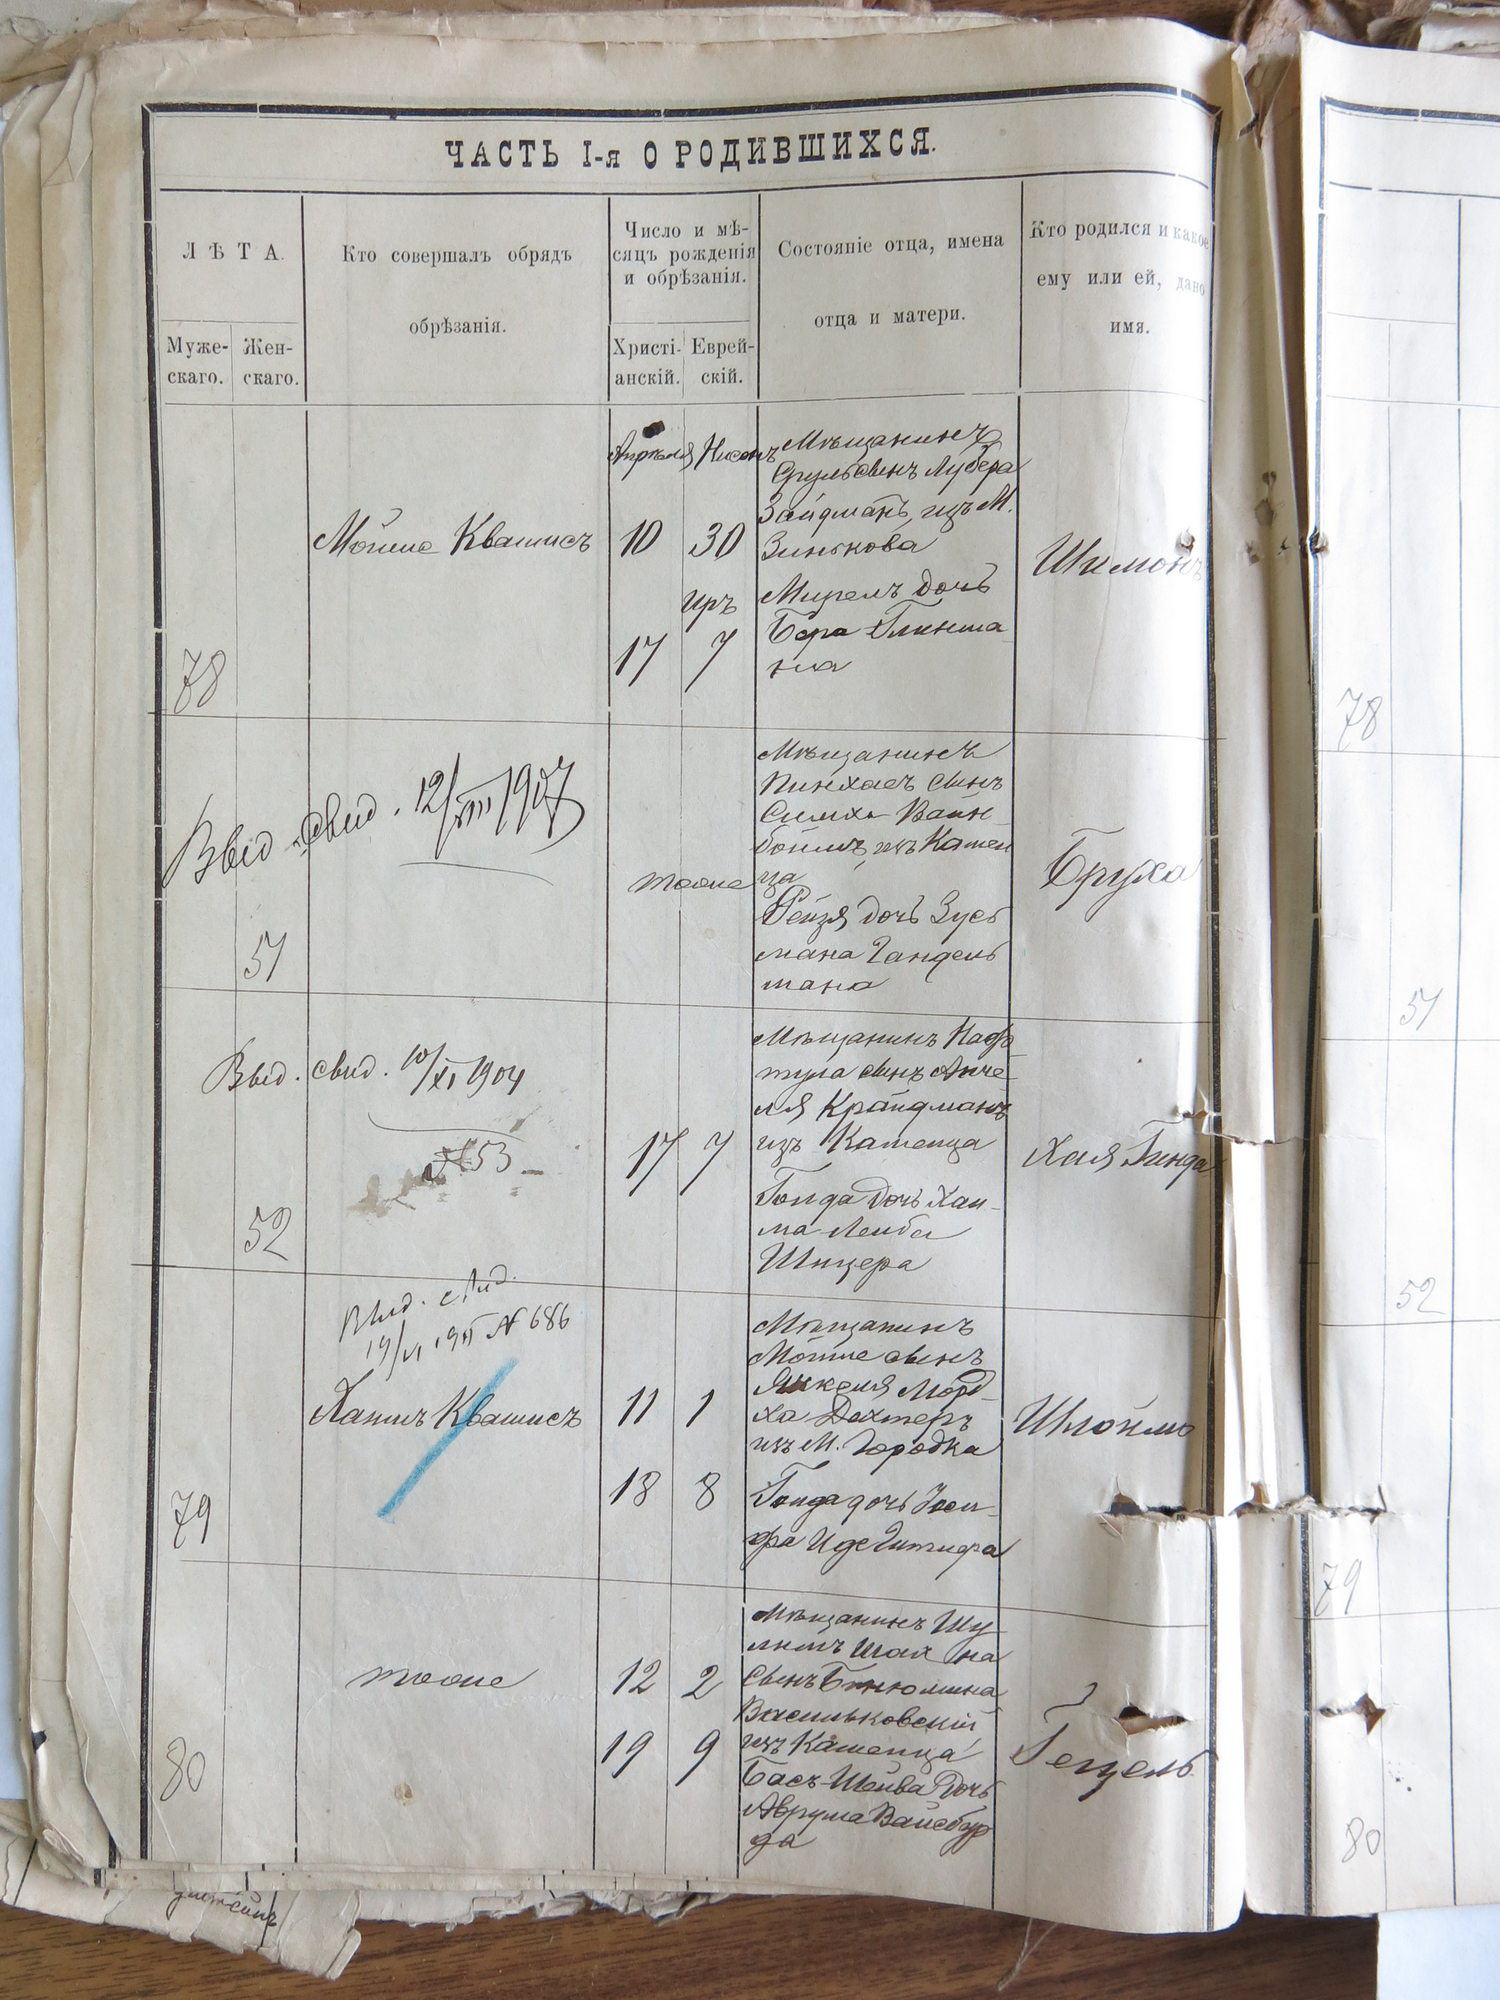 ЧАСТЬ I-я О РОДИВШИХСЯ.
ЛѢТА.
Муже-
скаго.
Жен-
скаго.
Кто совершалъ обрядъ
обрѣзанія.
Число и мѣ-
сяцъ рожденія
и обрѣзанія.
Христі-
анскій.
Еврей-
скій.
Состояніе отца, имена
отца и матери.
Кто родился и какое
ему или ей, дано
имя.
78
Мойше Квашисъ
Апрѣля Нисонъ
10 30
иръ
17 7
Мѣщанинъ
Сруль сынъ Лубера
Зайдманъ, изъ М.
Зинькова
Мирелъ дочь
Бера Глинма
на
Шимонъ
Выд. свид. 12/VIII 1907
51
тоже
Мѣщанинъ
Пинхасъ сынъ
Симха Вайн-
боймъ изъ Камен
ца
Рейзя дочь Зусь
мана Гандель
мана
Бруха
Выд. свид. 10/XI 1904
№53
52
17 7
Мѣщанинъ Наф-
тула сынъ Анче-
ля Крайдманъ
изъ Каменца
Голда дочь Хаи-
ма Лейба
Шпицера
Хая Гинда
Выд. свид.
19/VI 1911 № 686
79
Хаимъ Квашисъ
11 1
18 8
Мѣщанинъ
Мойше сынъ
Янкеля Морд-
ха Дехтеръ
изъ М. Городка
Голда дочь Иоси-
фа
Шлойме
80
тоже
12 2
19 9
Мѣщанинъ Шу-
лимъ Шах на
сынъ Бенюмина
Васильковскій
изъ Каменца
Бася-Шейва дочь
Аврума Вайсбур
да
Гецель
78
51
52
79
80